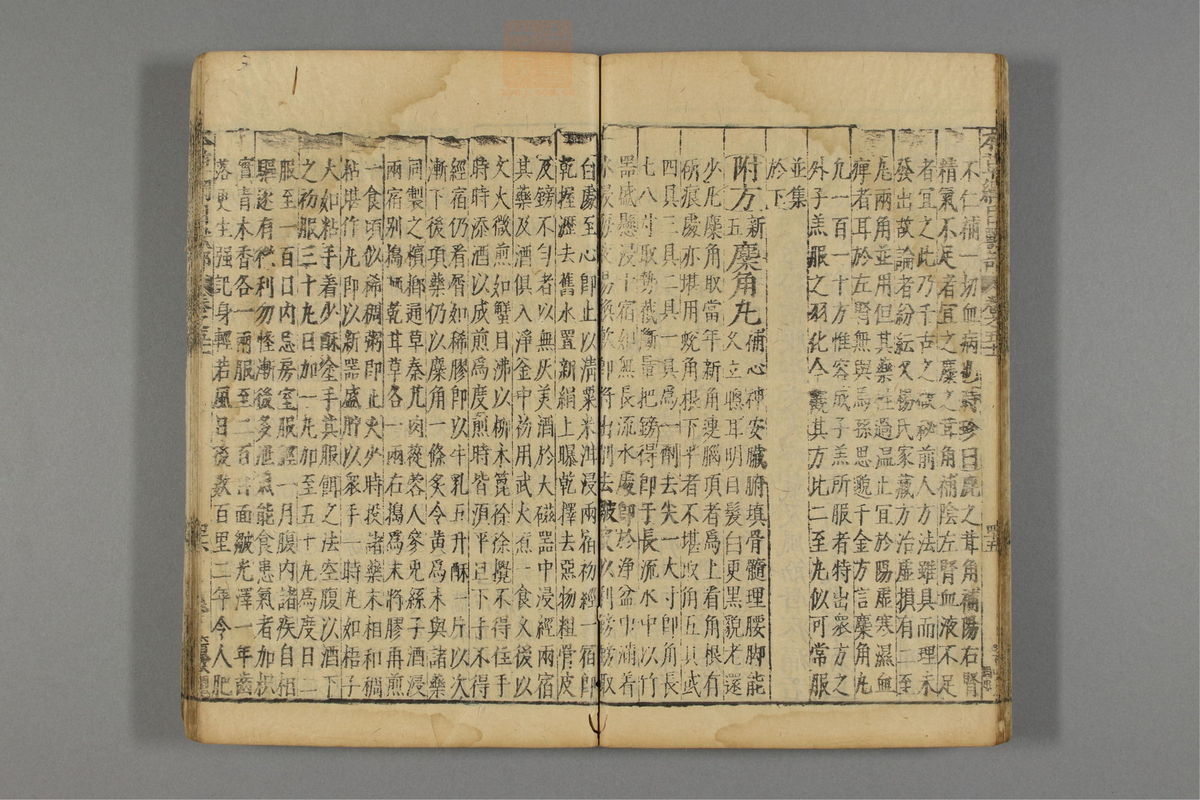 不仁補一切血病也時珍曰鹿之茸角補陽右腎
精氣不足者宜之麋之茸角補陰左腎血液不足
者宜之此乃千古之微秘前人方法雖具而理未
發出故論者紛紜又楊氏家藏方治虛損有二至
丸兩角並用但其藥性過温止宜於陽虛寒濕血
痺者耳於左腎無與焉孫思邈千金方言麋角丸
凡一百一十方惟容成子羔所服者特出衆方之
外子羔服之羽化今觀其方比二至丸似可常服
並集
於下
附方新五麋角丸補心神安臟腑填骨髓理腰脚能
久立聰耳明目髮白更黑貌老還
少凡麋角取當年新角連腦頂者爲上看角根有
斫痕處亦堪用蛻角根下平者不堪取角五具或
四具三具二具一具爲一劑去尖一大寸即角長
七八寸取勢截斷量把鎊得即于長流水中以竹
器盛懸浸十宿如無長流水處即於淨盆中滿着
水浸每夜易換軟即將出削去皺皮以利鎊鎊取
白處至心即止以清粟米泔浸兩宿初經一宿即
乾握瀝去舊水置新絹上曝乾擇去惡物粗骨皮
及鎊不勻者以無灰美酒於大磁器中浸經兩宿
其藥及酒俱入淨釜中初用武火煮一食久後以
文火微煎如蟹目沸以柳木篦徐徐攪不得住手
時時添酒以成煎爲度煎時皆須平旦下手不得
經宿仍看屑如稀膠即以牛乳五升酥一斤以次
漸下後項藥仍以麋角一條炙令黄爲末與諸藥
同製之檳榔通草秦艽肉蓯蓉人參兔絲子酒浸
兩宿別搗晒乾甘草各一兩右搗爲末將膠再煎
一食頃似稀稠粥即止火少時投諸藥末相和稠
粘堪作丸即以新器盛貯以衆手一時丸如梧子
大如粘手着少酥塗手其服餌之法空腹以酒下
之初服三十丸日加一丸加至五十丸爲度日二
服至一百日內忌房室服經一月腹內諸疾自相
驅逐有微利勿怪漸後多泄氣能食患氣者加枳
實青木香各一兩服至二百日面皺光澤一年齒
落更生强記身輕若風日後數百里二年令人肥